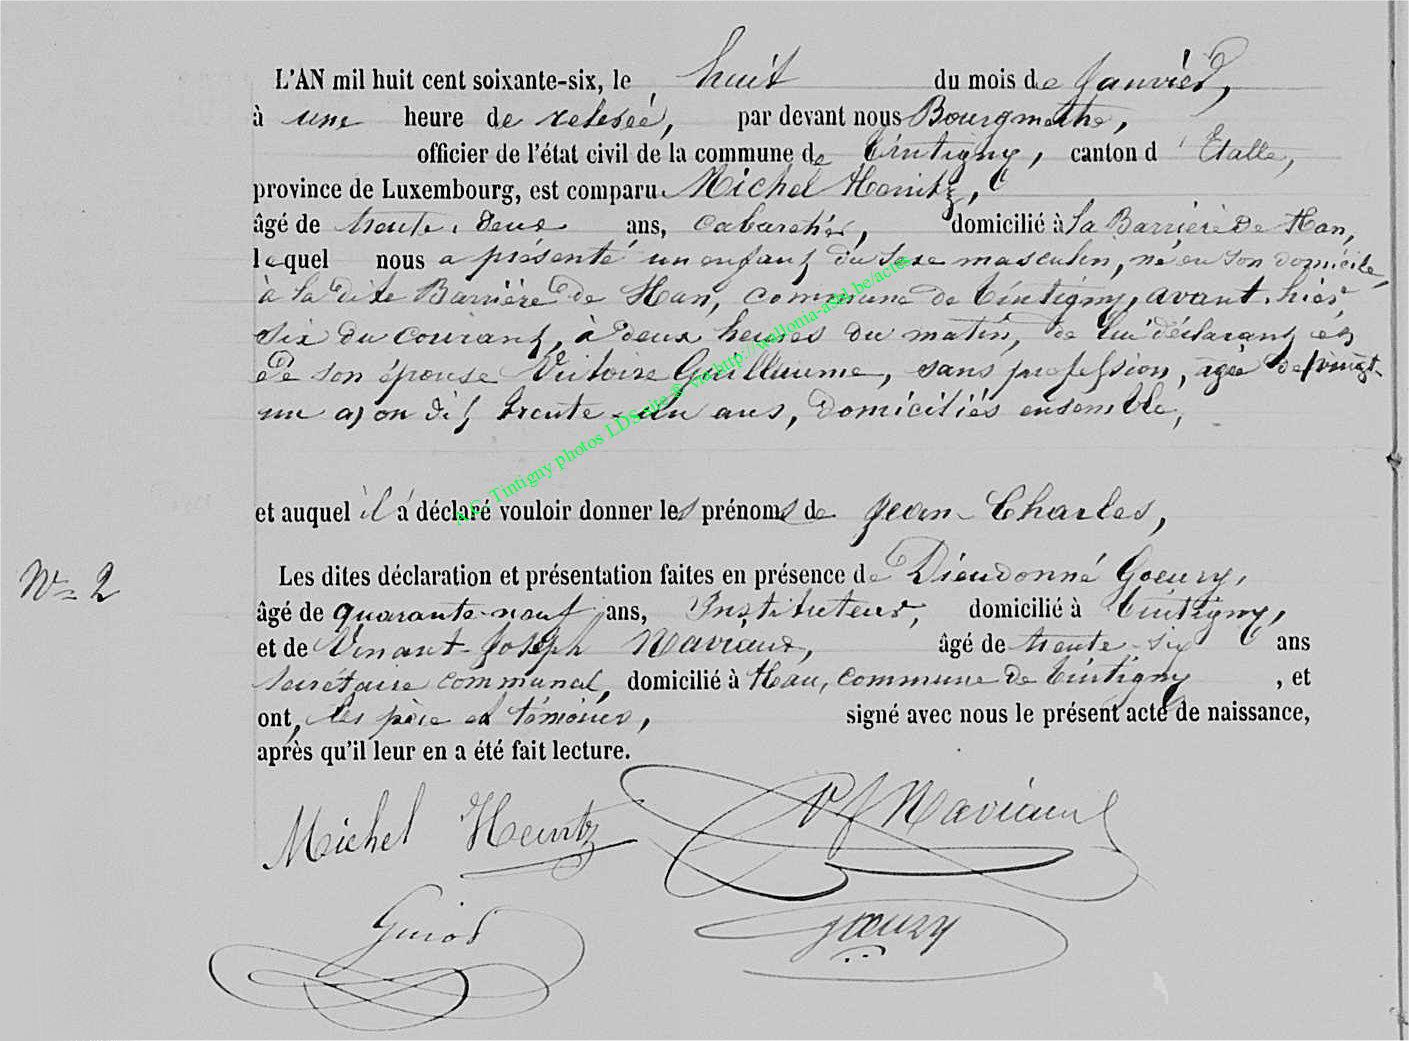 L'AN mil huit cent soixante-six, le huit du mois de Janvier,
à une heure de relevée, par devant nous Bourgmestre,
officier de l'état civil de la commune de Tintigny, canton d'Etalle,
province de Luxembourg, est comparu Michel Heintz,
âgé de trente-deux ans, cabaretier, domicilié à la Barrière de Han,
lequel nous a présenté un enfant du sexe masculin, né en son domicile,
à la dite Barrière de Han, commune de Tintigny, avant-hier
six du courant, à deux heures du matin, de lui déclarant et
de son épouse Victoire Guillaume, sans profession, agée de
trente-un ans, domiciliés ensemble,
et auquel il a déclaré vouloir donner les prénoms de Jean-Charles,
N° 2
Les dites déclaration et présentation faites en présence de Dieudonné Goeury,
âgé de quarante-neuf ans, Instituteur, domicilié à Tintigny,
et de Vinant-Joseph Naviaux, âgé de trente-six ans
secrétaire communal, domicilié à Han, commune de Tintigny, et
ont, les père et témoins, signé avec nous le présent acte de naissance,
après qu'il leur en a été fait lecture.
Michel Heintz VJ Naviaux
Guiot Goeury
A.C. Tintigny photos LDSsite © via http://wallonia-asbl.be/actes